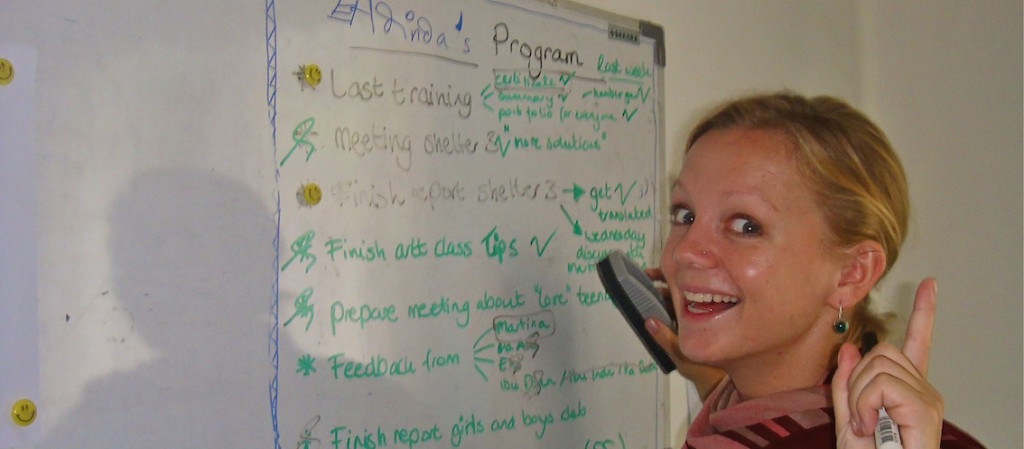 Program
last week
Last training
certificate ✓
summary ✓ - hamburger ✓
portfolio for everyone ✓
meeting shelter 3 ✓ "more solutions"
Finish report shelter 3 → get ✓
translated
Wednesday
Finish art class Tips ✓
Prepare meeting about "love"
Feedback from
Martina
Finish report girls and boys club